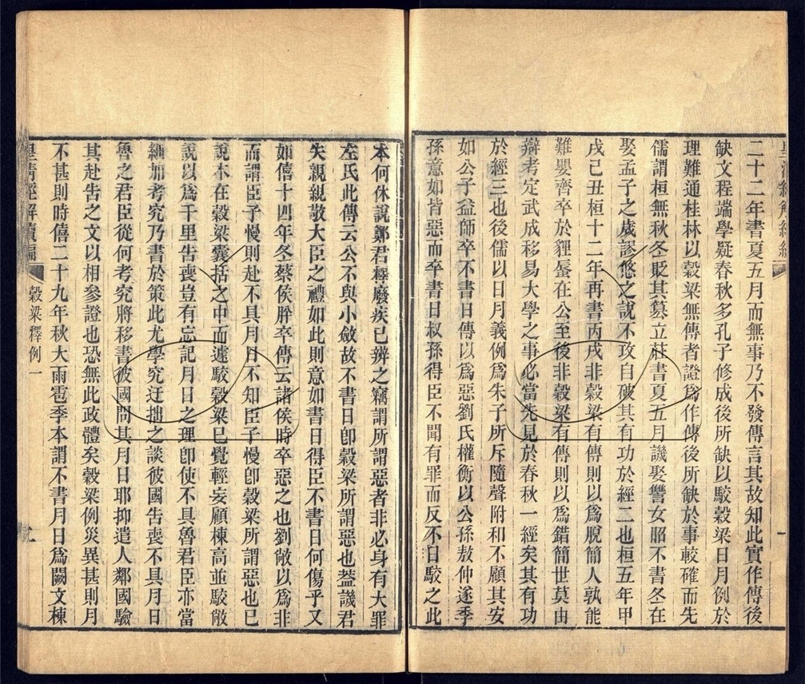 二十二年書夏五月而無事乃不發傳言其故知此實作傳後
缺文程端學疑春秋多孔子修成後所缺以駮穀梁日月例於
理難通桂林以穀梁無傳者證爲作傳後所缺於事較確而先
儒謂桓無秋冬貶其篡立莊書夏五月譏娶讐女昭不書冬在
娶孟子之歲謬悠之說不攻自破其有功於經二也桓五年甲
戌己丑桓十二年再書丙戌非穀梁有傳則以爲脫簡人孰能
難嬰齊卒於貍蜃在公至後非穀梁有傳則以爲錯簡世莫由
辯考定武成移易大學之事必當先見於春秋一經矣其有功
於經三也後儒以日月義例爲朱子所斥隨聲附和不顧其安
如公子益師卒不書日傳以爲惡劉氏權衡以公孫敖仲遂季
孫意如皆惡而卒書日叔孫得臣不聞有罪而反不日駮之此
本何休說鄭君釋廢疾已辨之竊謂所謂惡者非必身有大罪
左氏此傳云公不與小斂故不書日卽穀梁所謂惡也葢譏君
失親親敬大臣之禮如此則意如書日得臣不書日何傷乎又
如僖十四年冬蔡侯肸卒傳云諸侯時卒惡之也劉敞以爲非
而謂臣子慢則赴不具月日不知臣子慢卽穀梁所謂惡也已
說本在穀梁囊括之中而遽駮穀梁已覺輕妄顧棟高並駮敞
說以爲千里吿喪豈有忘記月日之理卽使不具魯君臣亦當
細加考究乃書於策此尤學究迂拙之談彼國吿喪不具月日
魯之君臣從何考究將移書彼國問其月日耶抑遣人鄰國驗
其赴吿之文以相參證也恐無此政體矣穀梁例災異甚則月
不甚則時僖二十九年秋大雨雹季本謂不書月日爲闕文棟
皇清經解續編
穀梁釋例一